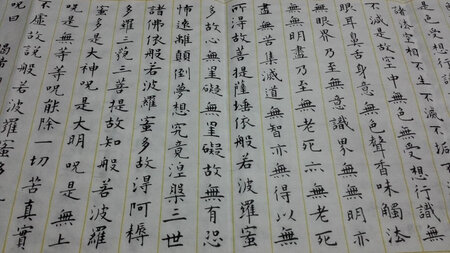 是色受想行識
諸法空相不生不滅不垢
不減是故空中無色無受想行識無
眼耳鼻舌身意無色聲香味觸法
無眼界乃至無意識界無無明亦
無無明盡乃至無老死亦無老死
盡無苦集滅道無智亦無得以無
所得故菩提薩埵依般若波羅蜜
多故心無罣礙無罣礙故無有恐
怖遠離顛倒夢想究竟涅槃三世
諸佛依般若波羅蜜多故得阿耨
多羅三藐三菩提故知般若波羅
蜜多是大神呪是大明呪是無上
呪是無等等呪能除一切苦真實
不虛故說般若波羅蜜多
呪曰